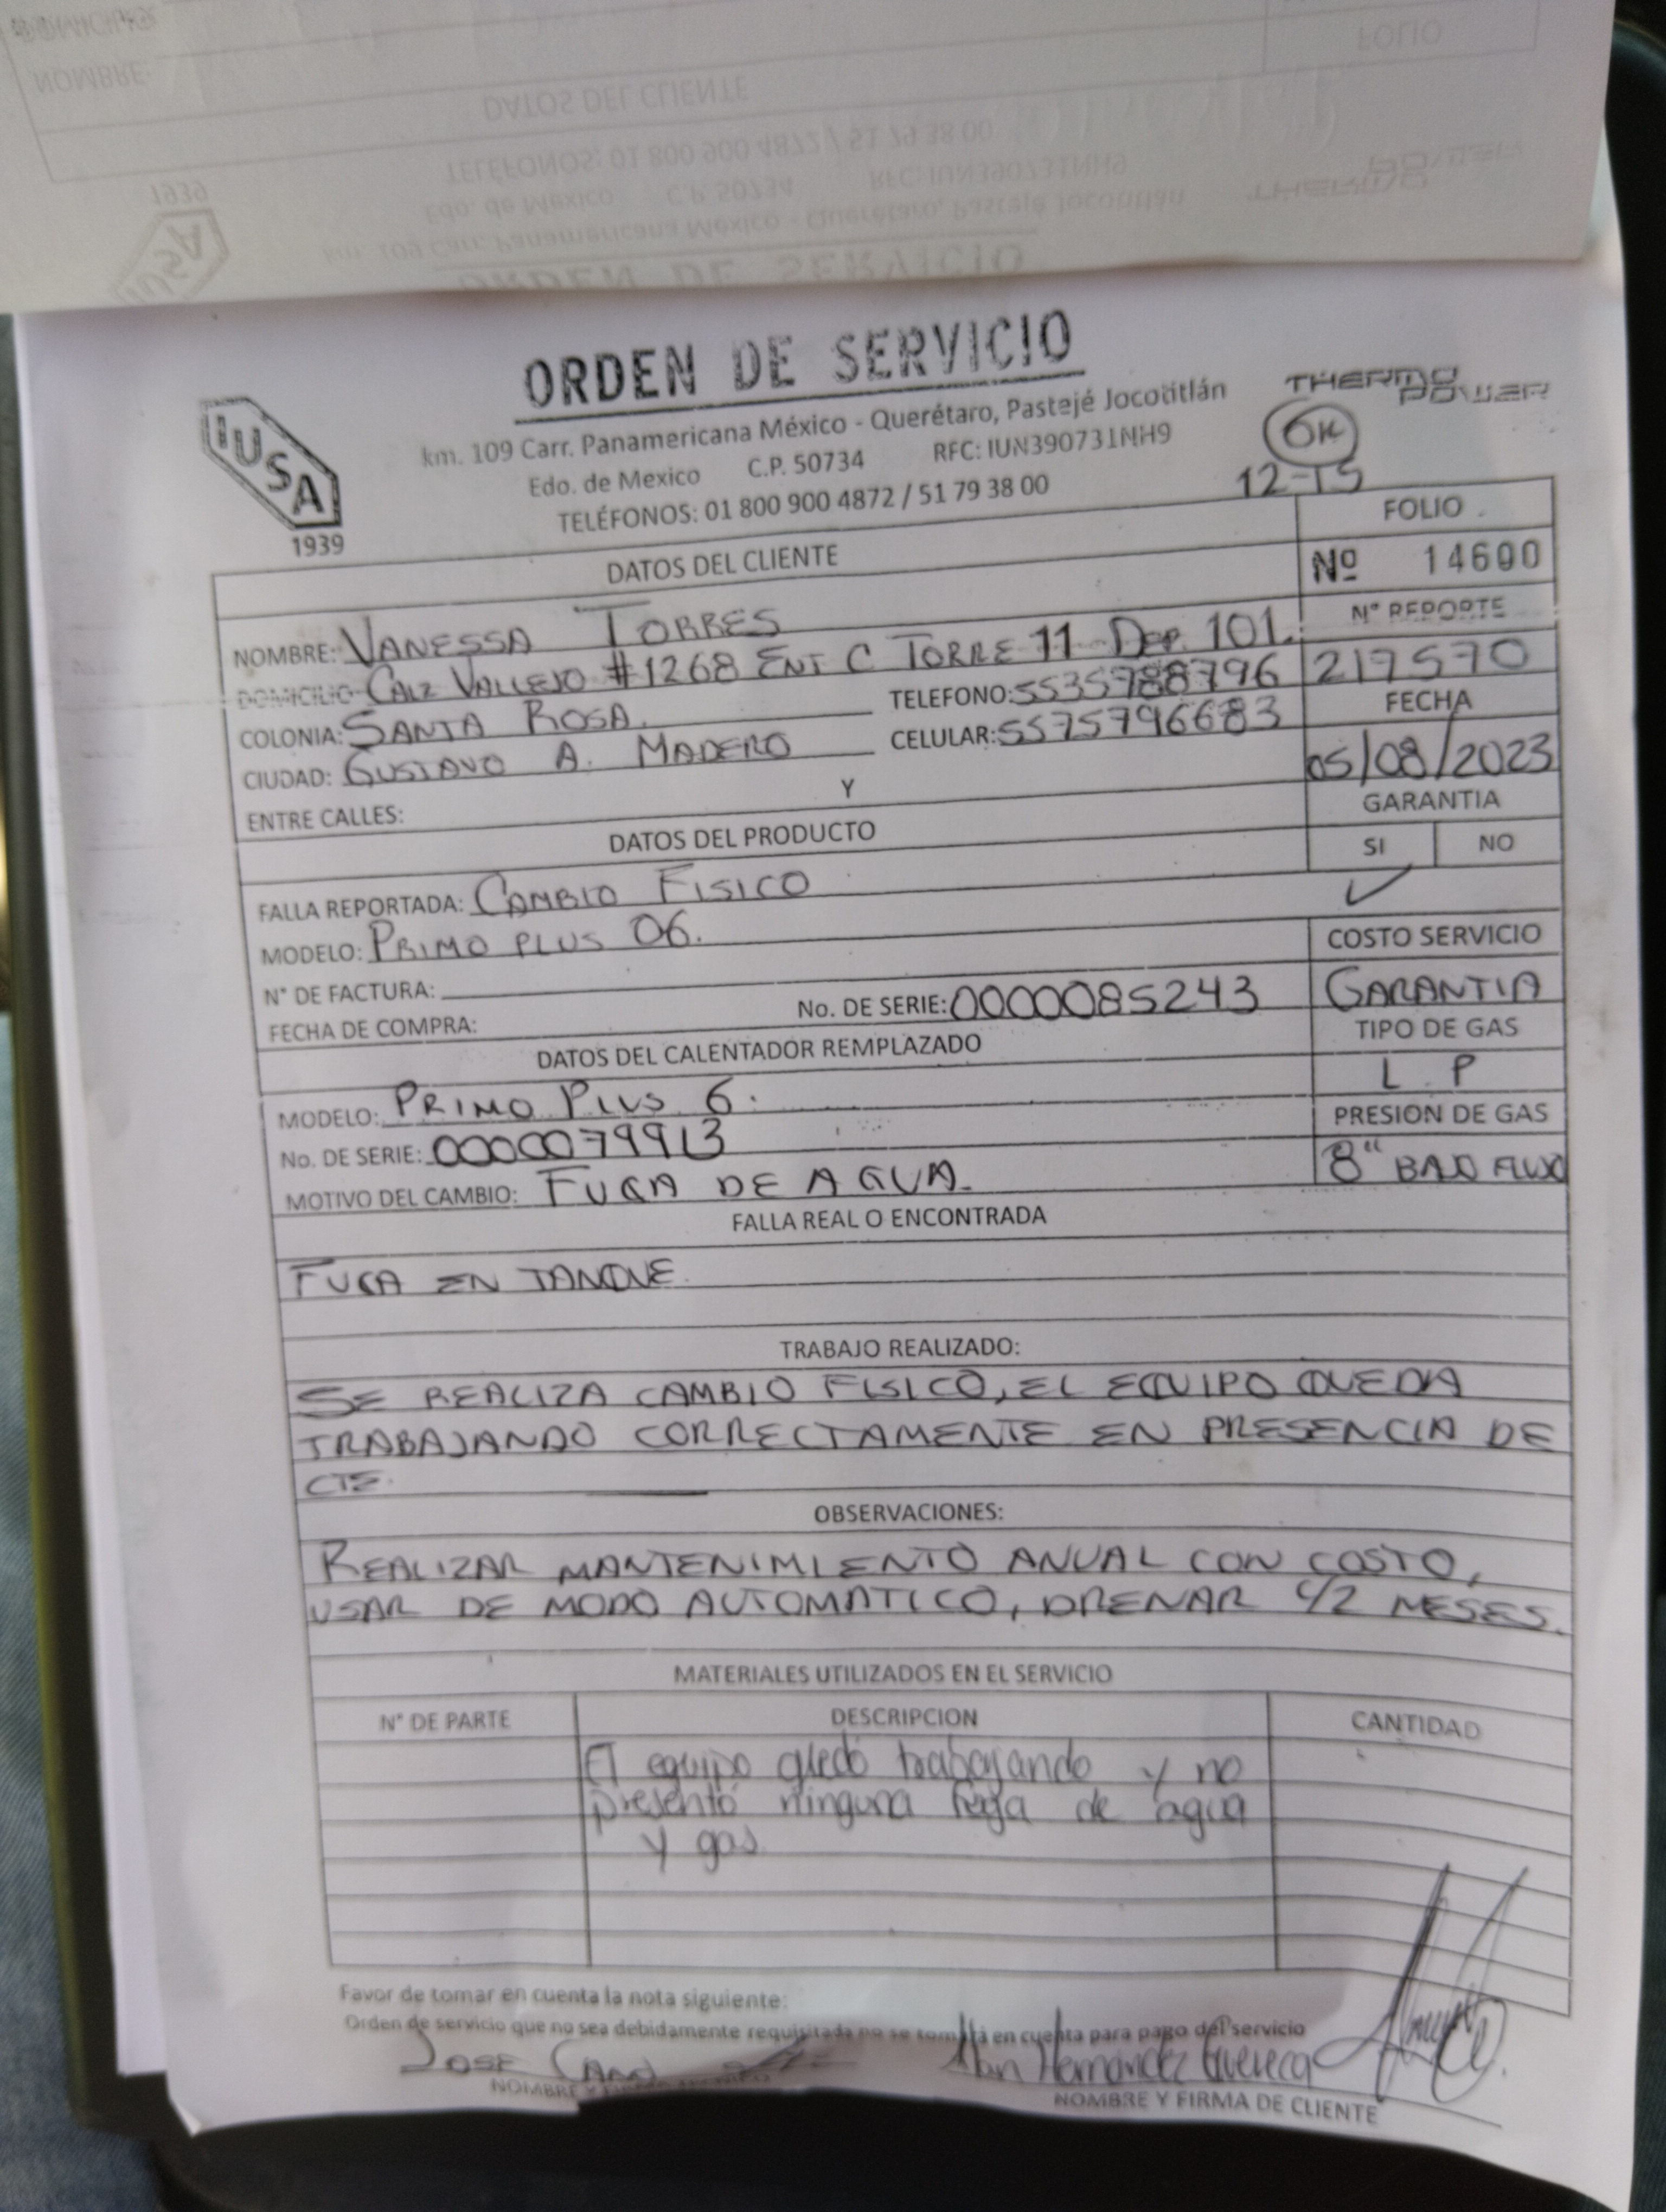 ORDEN DE SERVICIO
IUSA
1939
THERMO
POWER
km. 109 Carr. Panamericana México - Querétaro, Pastejé Jocotitlán
Edo. de Mexico C.P. 50734 RFC: IUN390731NH9
TELÉFONOS: 01 800 900 4872 / 51 79 38 00
OK
12-15
DATOS DEL CLIENTE
FOLIO
Nº 14600
NOMBRE: VANESSA TORRES
N° REPORTE
DOMICILIO CALZ VALLEJO #1268 ENT C TORRE 11 DEP. 101.
217570
COLONIA: SANTA ROSA. TELEFONO: 5535788796
FECHA
CIUDAD: GUSTAVO A. MADERO CELULAR: 5575796683
05/08/2023
ENTRE CALLES: Y
GARANTIA
DATOS DEL PRODUCTO
SI NO
✓
FALLA REPORTADA: CAMBIO FISICO
MODELO: PRIMO PLUS 06.
COSTO SERVICIO
N° DE FACTURA:
GARANTIA
FECHA DE COMPRA: No. DE SERIE: 0000085243
TIPO DE GAS
DATOS DEL CALENTADOR REMPLAZADO
L P
MODELO: PRIMO PLUS 6.
PRESION DE GAS
No. DE SERIE: 0000079913
8" BAJO FLUJO
MOTIVO DEL CAMBIO: FUGA DE AGUA.
FALLA REAL O ENCONTRADA
FUGA EN TANQUE.
TRABAJO REALIZADO:
SE REALIZA CAMBIO FISICO, EL EQUIPO QUEDA
TRABAJANDO CORRECTAMENTE EN PRESENCIA DE
CTE.
OBSERVACIONES:
REALIZAR MANTENIMIENTO ANUAL CON COSTO,
USAR DE MODO AUTOMATICO, DRENAR C/2 MESES.
MATERIALES UTILIZADOS EN EL SERVICIO
N° DE PARTE DESCRIPCION CANTIDAD
El equipo quedó trabajando y no
presentó ninguna fuga de agua
y gas
Favor de tomar en cuenta la nota siguiente:
Orden de servicio que no sea debidamente requisitada no se tomará en cuenta para pago del servicio
JOSE Hernandez
NOMBRE Y NOMBRE Y FIRMA DE CLIENTE